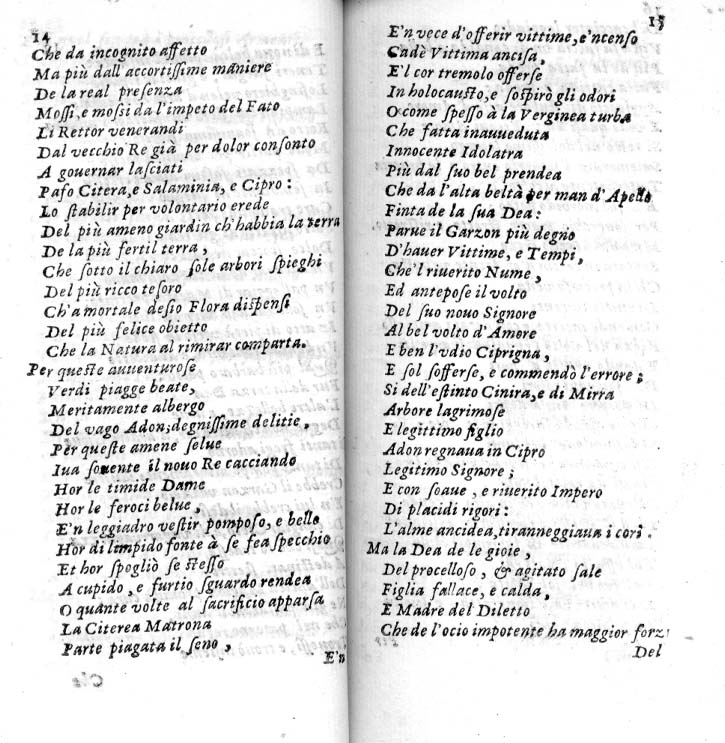 14
Che da incognito affetto
Ma più dall'accortiſſime maniere
De la real preſenza
Moſſi, e moſsi da l'impeto del Fato
Li Rettor venerandi
Dal vecchio Re già per dolor conſonto
A gouernar laſciati
Pafo Citera, e Salaminia, e Cipro:
Lo ſtabilir per volontario erede
Del più ameno giardin ch'habbia la terra
De la più fertil terra,
Che ſotto il chiaro ſole arbori ſpieghi
Del più ricco teſoro
Ch'a mortale deſio Flora diſpenſi
Del più felice obietto
Che la Natura al rimirar comparta.
Per queſte auuenturoſe
Verdi piagge beate,
Meritamente albergo
Del vago Adon; degniſſime delitie,
Per queſte amene ſelue
Iua ſouente il nouo Re cacciando
Hor le timide Dame
Hor le feroci belue,
E'n leggiadro veſtir pompoſo, e bello
Hor di limpido fonte à ſe fea ſpecchio
Et hor ſpogliò ſe ſteſſo
A cupido, e furtio ſguardo rendea
O quante volte al ſacrificio apparſa
La Citerea Matrona
Parte piagata il ſeno,
E'n
15
E'n vece d'offerir vittime, e'ncenſo
Cadè Vittima anciſa,
E'l cor tremolo offerſe
In holocauſto, e ſoſpirò gli odori
O come ſpeſſo à la Verginea turba
Che fatta inauueduta
Innocente Idolatra
Più dal ſuo bel prendea
Che da l'alta beltà per man d'Apelle
Finta de la ſua Dea:
Parue il Garzon più degno
D'hauer Vittime, e Tempi,
Che'l riuerito Nume,
Ed antepoſe il volto
Del ſuo nouo Signore
Al bel volto d'Amore
E ben l'vdio Ciprigna,
E ſol ſofferſe, e commendò l'errore;
Si dell'eſtinto Cinira, e di Mirra
Arbore lagrimoſe
E legittimo figlio
Adon regnaua in Cipro
Legitimo Signore;
E con ſoaue, e riuerito Impero
Di placidi rigori:
L'alme ancidea, tiranneggiaua i cori.
Ma la Dea de le gioie,
Del proceloſo, & agitato ſale
Figlia fallace, e calda,
E Madre del Diletto
Che de l'ocio impotente ha maggior forz
Del